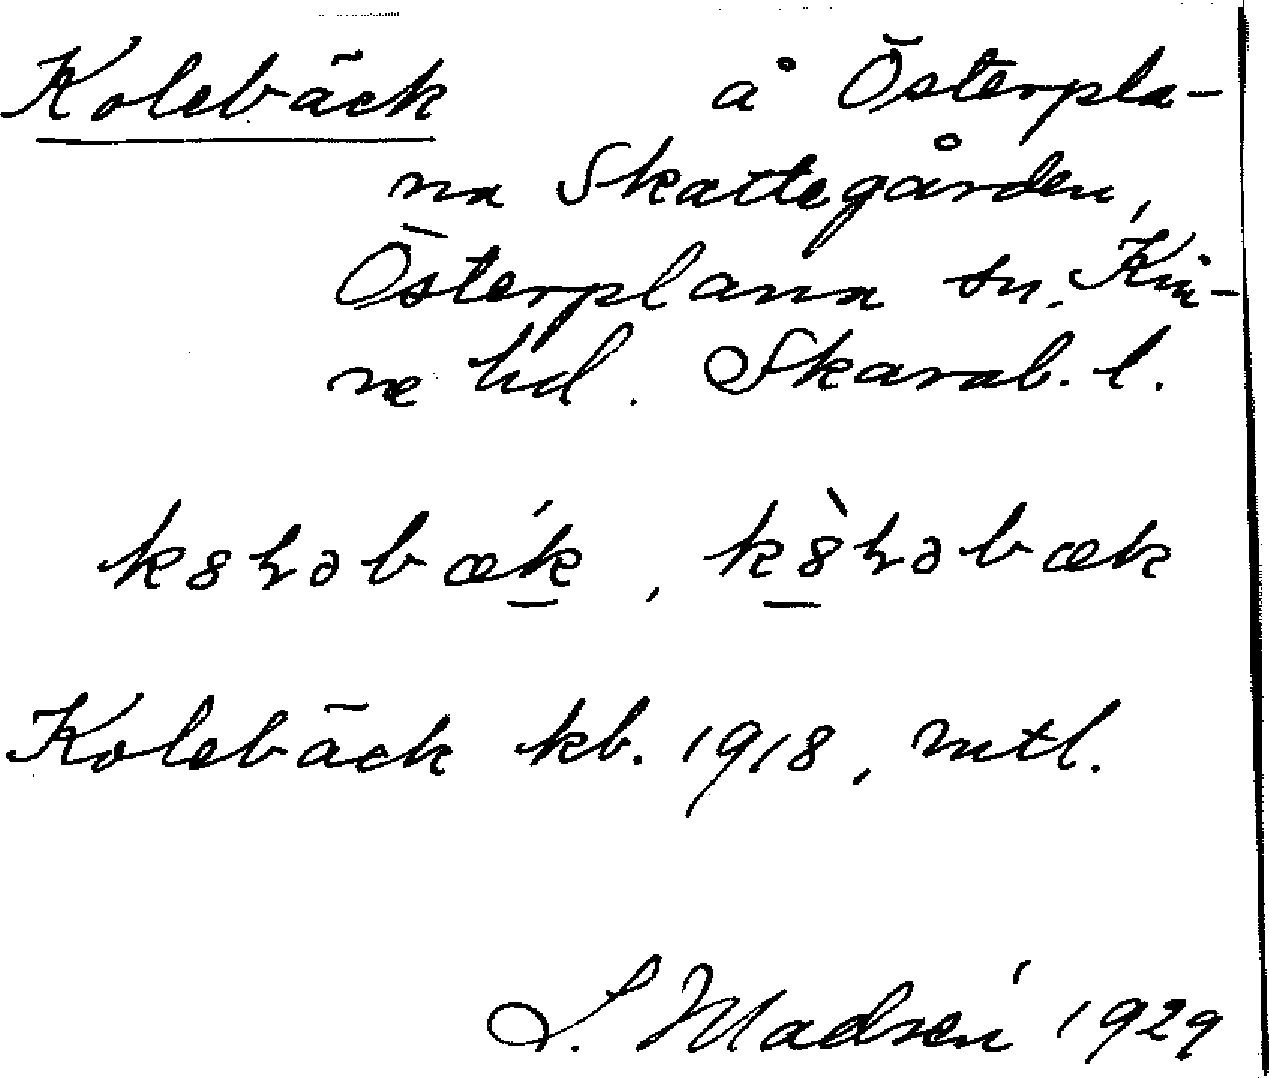 Kolebäck å Österpla-
na Skattegården,
Österplana sn. Kin-
ne hd. Skarab. l.
Kolebäck kb. 1918, mtl.
S. Madsén 1929